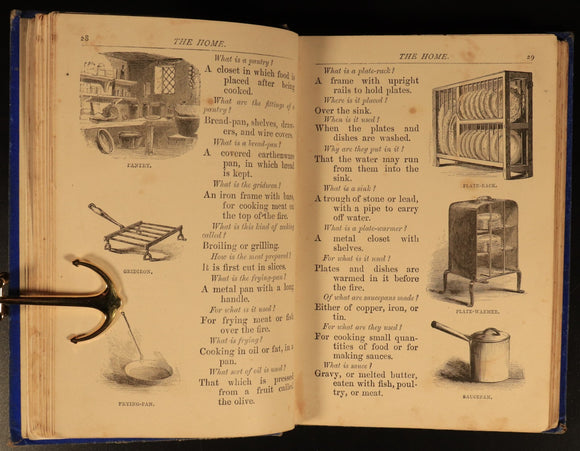 28
THE HOME.
What is a pantry?
A closet in which food is
placed after being
cooked.
What are the fittings of a
pantry?
Bread-pan, shelves, draw-
ers, and wire covers.
What is a bread-pan?
A covered earthenware
pan, in which bread
is kept.
What is the gridiron?
An iron frame with bars,
for cooking meat on
the top of the fire.
What is this kind of cooking
called?
Broiling or grilling.
How is the meat prepared?
It is first cut in slices.
What is the frying-pan?
A metal pan with a long
handle.
For what is it used?
For frying meat or fish
over the fire.
What is frying?
Cooking in oil or fat, in a
pan.
What sort of oil is used?
That which is pressed
from a fruit called
the olive.
PANTRY.
GRIDIRON.
FRYING-PAN.
THE HOME.
29
What is a plate-rack?
A frame with upright
rails to hold plates.
Where is it placed?
Over the sink.
When is it used?
When the plates and
dishes are washed.
Why are they put in it?
That the water may run
from them into the
sink.
What is a sink?
A trough of stone or lead,
with a pipe to carry
off water.
What is a plate-warmer?
A metal closet with
shelves.
For what is it used?
Plates and dishes are
warmed in it before
the fire.
Of what are saucepans made?
Either of copper, iron, or
tin.
For what are they used?
For cooking small quan-
tities of food or for
making sauces.
What is sauce?
Gravy, or melted butter,
eaten with fish, poul-
try, or meat.
PLATE-RACK.
PLATE-WARMER.
SAUCEPAN.